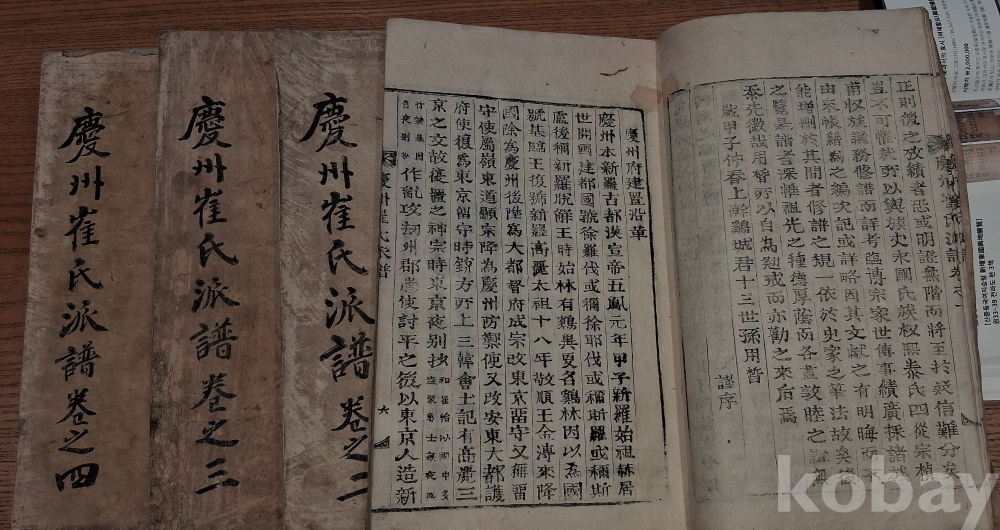 正則後之攷績者恐或明證無階而將至於疑信難分矣
豈不可惟㢤所以與族丈永國氏族叔熙泰氏四從宗楨
甫収族議務修譜而詳考
由來帳籍為之編次記或詳略因其文献之有明晦而不
能增刪於其間者修譜之規一依於史家之筆法故矣後
之覽是譜者深惟祖先之種德厚蔭而各盡敦睦之誼無
忝先徽㢤用督所以自為㤼戒而亦勸之來后焉
歲甲子仲春上幹鷄城君十三世孫用晳
謹序
慶州府建置沿革
慶州本新羅古都漢宣帝五鳳元年甲子新羅始祖赫居
世開國建都國號徐羅伐或稱徐耶伐或稱斯羅或稱斯
盧後稱新羅脫解王時始林有鷄異更名鷄林因以為國
號基臨王復號新羅高麗太祖十八年敬順王金溥來降
國除為慶州後陞為大都督府成宗改東京留守又無留
守使屬嶺東道顯宗降為慶州防禦使又改安東大都護
府使復為東京留守時銳方所上三韓會土記有高麗三
京之文故從舊之神宗時東京夜别抄
作亂攻刼州郡遣使討平之後以東京人造新
慶州崔氏派譜
六
慶州崔氏派譜 卷之二
慶州崔氏派譜 卷之三
慶州崔氏派譜 卷之四
kobay